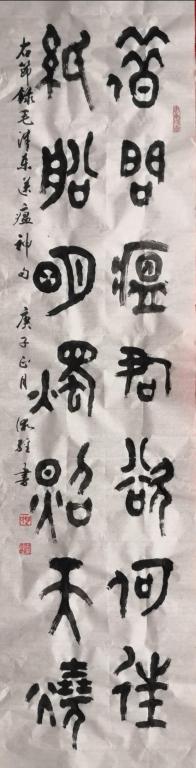 借問瘟君欲何往
紙船明燭照天燒
右節錄毛澤東送瘟神句 庚子正月 書